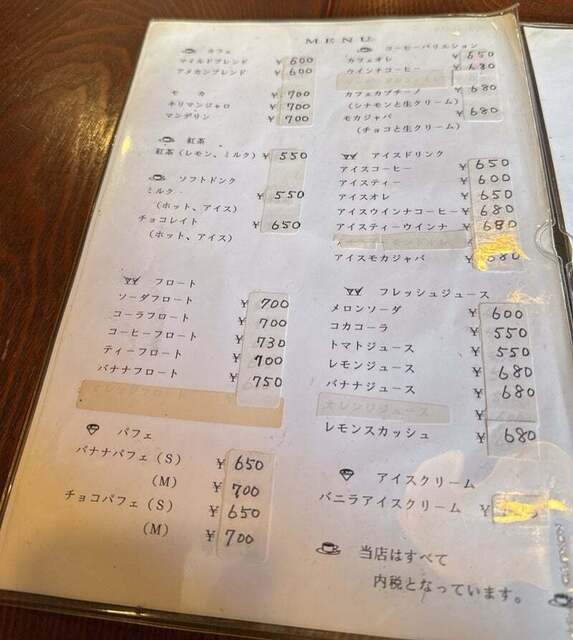 MENU
カフェ
マイルドブレンド ¥600
アメカンブレンド ¥600
モカ ¥700
キリマンジャロ ¥700
マンデリン ¥700
紅茶
紅茶(レモン、ミルク) ¥550
ソフトドンク
ミルク ¥550
(ホット、アイス)
チョコレイト ¥650
(ホット、アイス)
フロート
ソーダフロート ¥700
コーラフロート ¥700
コーヒーフロート ¥730
ティーフロート ¥700
バナナフロート ¥750
パフェ
バナナパフェ(S) ¥650
(M) ¥700
チョコパフェ(S) ¥650
(M) ¥700
コーヒーバリエション
カフェオレ ¥650
ウインナコーヒー ¥680
カフェカプチーノ ¥680
(シナモンと生クリーム)
モカジャバ ¥680
(チョコと生クリーム)
アイスドリンク
アイスコーヒー ¥650
アイスティー ¥600
アイスオレ ¥650
アイスウインナコーヒー ¥680
アイスティーウインナ ¥680
アイスモカジャバ ¥680
フレッシュジュース
メロンソーダ ¥600
コカコーラ ¥550
トマトジュース ¥550
レモンジュース ¥680
バナナジュース ¥680
オレンジジュース ¥
レモンスカッシュ ¥680
アイスクリーム
バニラアイスクリーム ¥
当店はすべて
内税となっています。